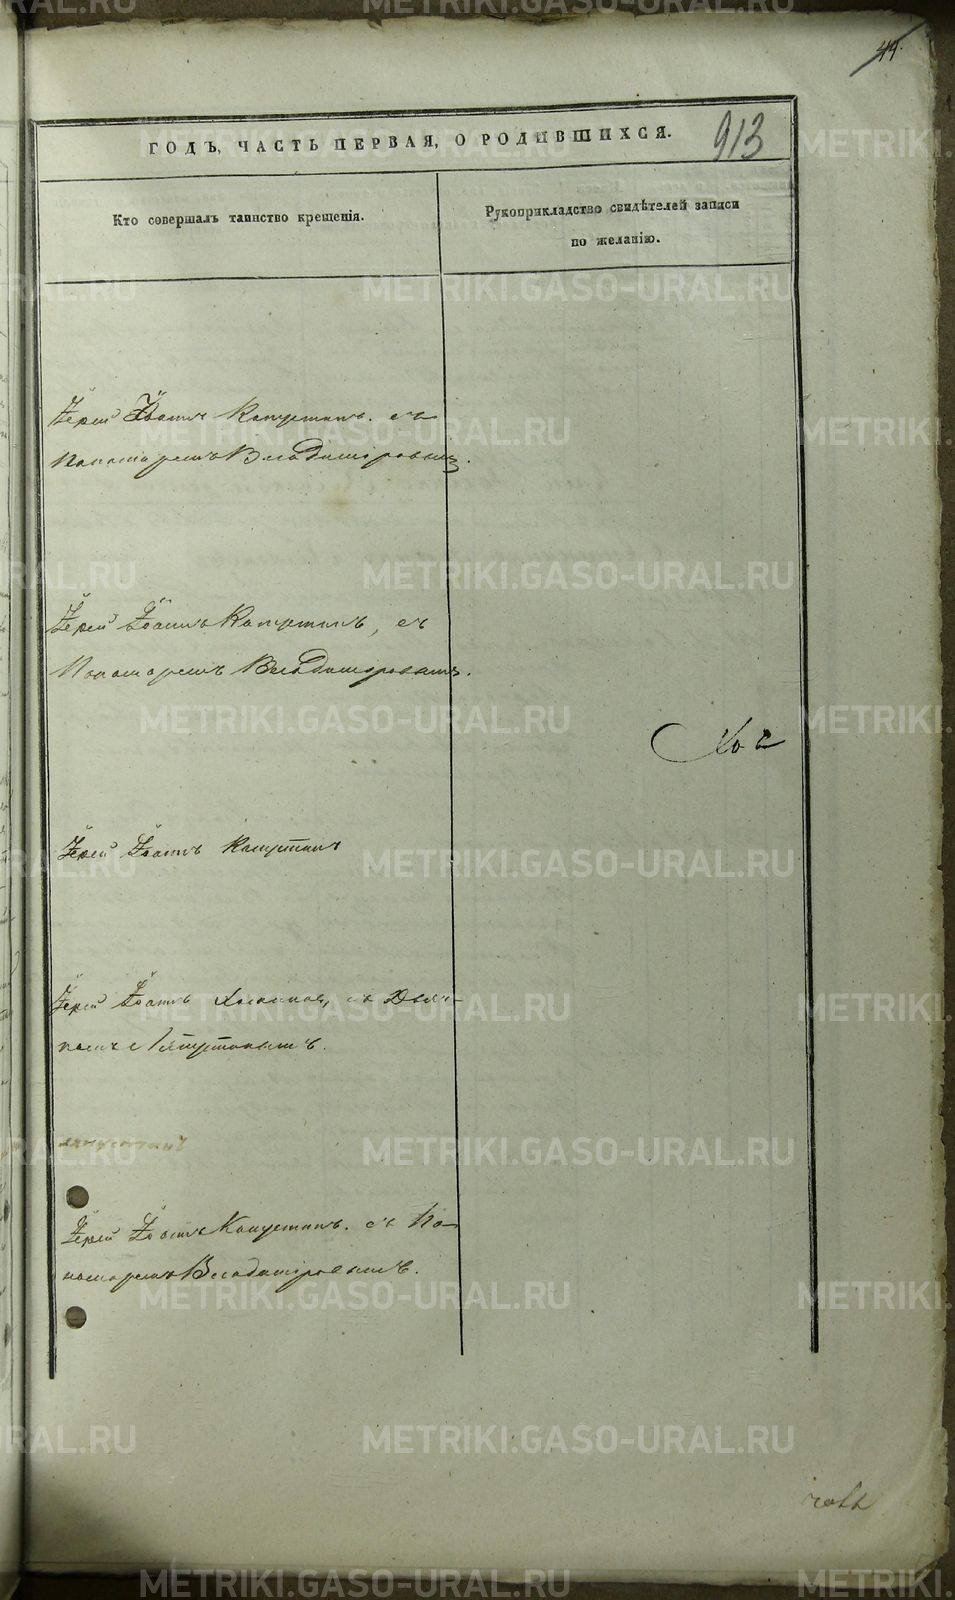 44.
ГОДЪ, ЧАСТЬ ПЕРВАЯ, О РОДИВШИХСЯ.
913
Кто совершалъ таинство крещенія.
Рукоприкладство свидѣтелей записи
по желанію.
Іерей Іоаннъ Капустинъ. съ
Пономаремъ Владиміровымъ.
Іерей Іоаннъ Капустинъ, съ
Пономаремъ Владиміровымъ.
Іерей Іоаннъ Капустинъ
Іерей Іоаннъ съ Дья-
Іерей Іоаннъ Капустинъ. съ По-
номаремъ Владиміровымъ.
METRIKI.GASO-URAL.RU